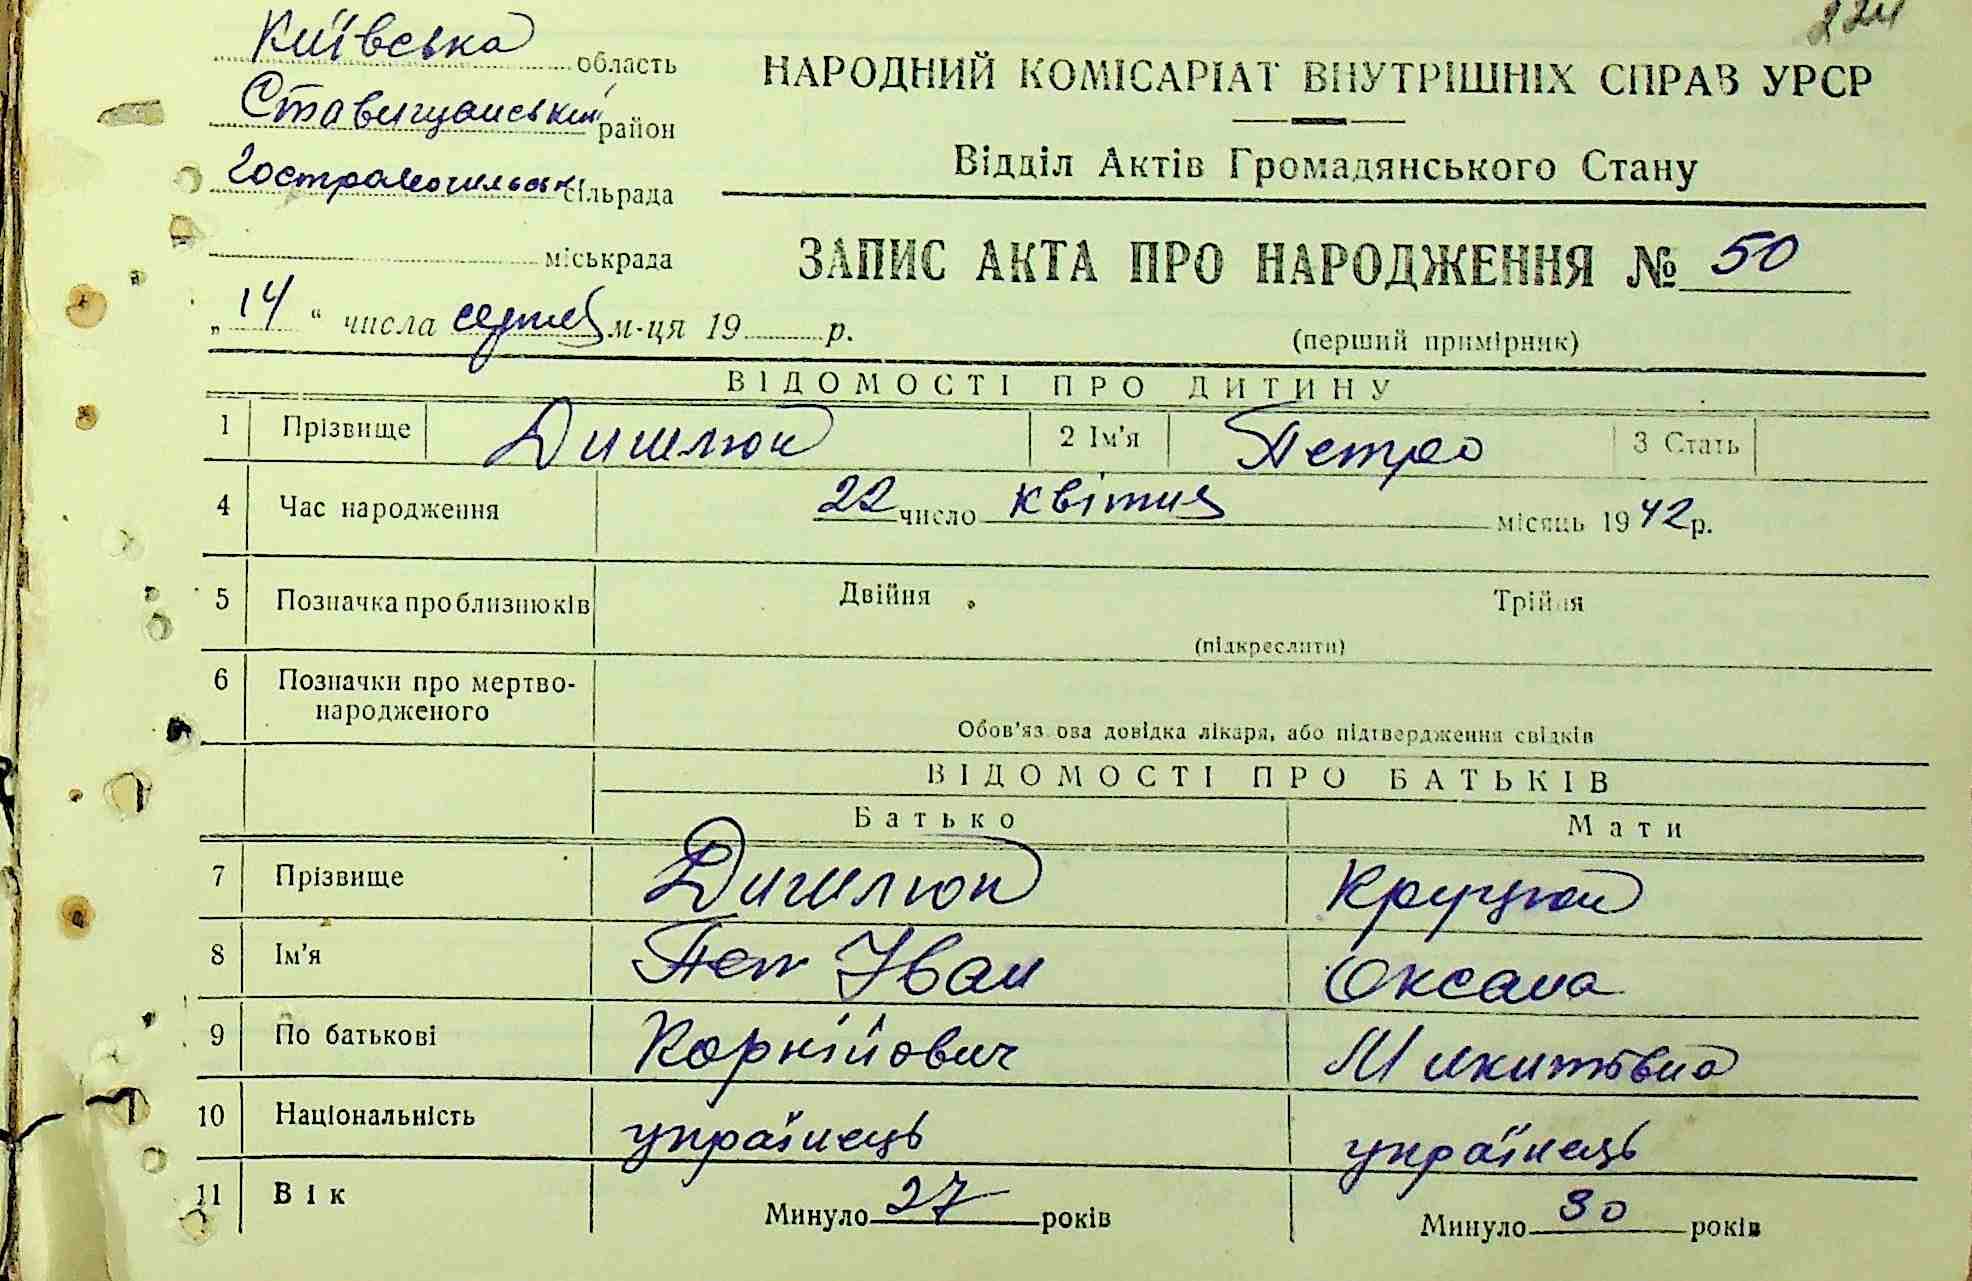 224
Київська область
Ставищанський район
Гострмогильськ сільрада
міськрада
НАРОДНИЙ КОМІСАРІАТ ВНУТРІШНІХ СПРАВ УРСР
Відділ Актів Громадянського Стану
ЗАПИС АКТА ПРО НАРОДЖЕННЯ № 50
(перший примірник)
„ 14 “ числа серпня м-ця 19 р.
ВІДОМОСТІ ПРО ДИТИНУ
1 Прізвище Дишлюк 2 Ім'я Петро 3 Стать
4 Час народження 22 число квітня місяць 1942 р.
5 Позначка про близнюків Двійня Трійня
(підкреслити)
6 Позначки про мертво-
народженого
Обов'яз ова довідка лікаря, або підтвердження свідків
ВІДОМОСТІ ПРО БАТЬКІВ
Батько Мати
7 Прізвище Дишлюк
8 Ім'я Пет Іван Оксана
9 По батькові Корнійович Микитовна
10 Національність українець українець
11 Вік Минуло 27 років Минуло 30 років